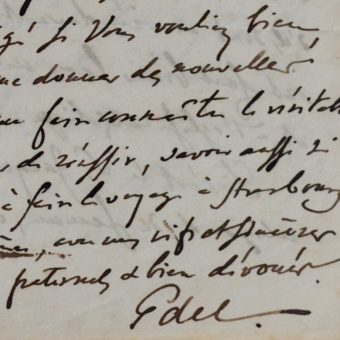 si Vous vouliez bien
me donner des nouvelles
me faire connaître le véritable
de réussir, savoir aussi si
à faire le voyage à Strasbourg
avec mes vifs et sincères
fraternels & bien dévoués.
Edel.